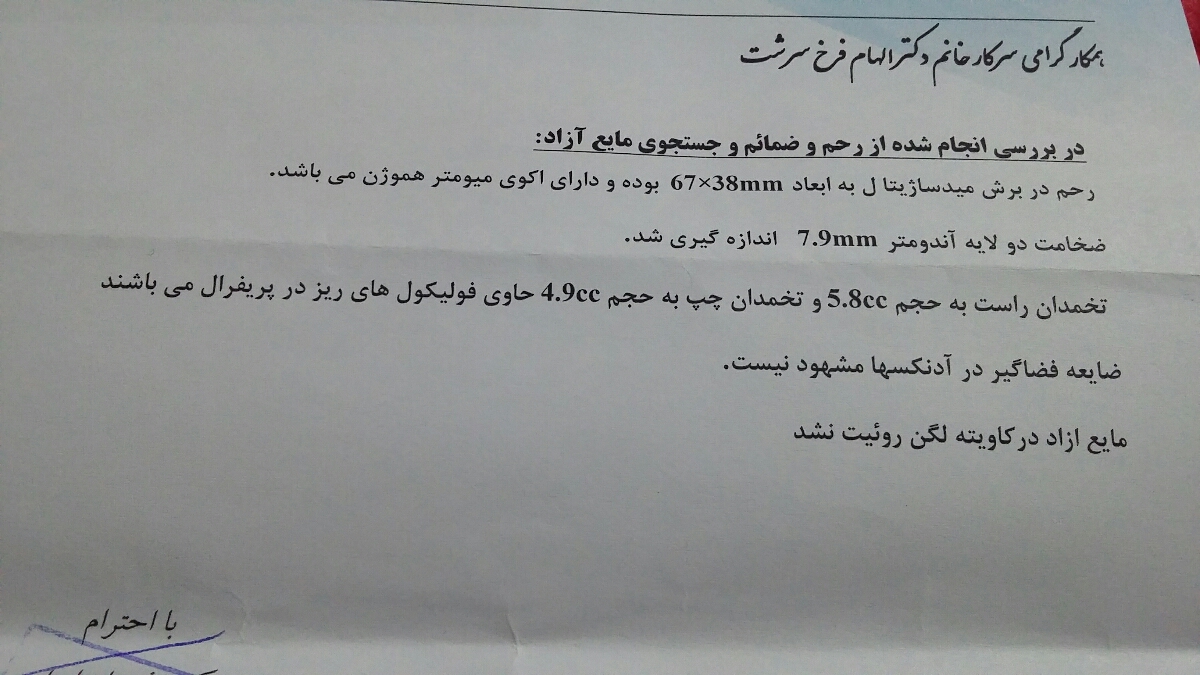 همکار گرامی سرکار خانم دکتر الهام فرخ سرشت
در بررسی انجام شده از رحم و ضمائم و جستجوی مایع آزاد:
رحم در برش میدساژیتا ل به ابعاد 67×38mm بوده و دارای اکوی میومتر هموژن می باشد.
ضخامت دو لایه آندومتر 7.9mm اندازه گیری شد.
تخمدان راست به حجم 5.8cc و تخمدان چپ به حجم 4.9cc حاوی فولیکول های ریز در پریفرال می باشند
ضایعه فضاگیر در آدنکسها مشهود نیست.
مایع ازاد درکاویته لگن روئیت نشد
با احترام